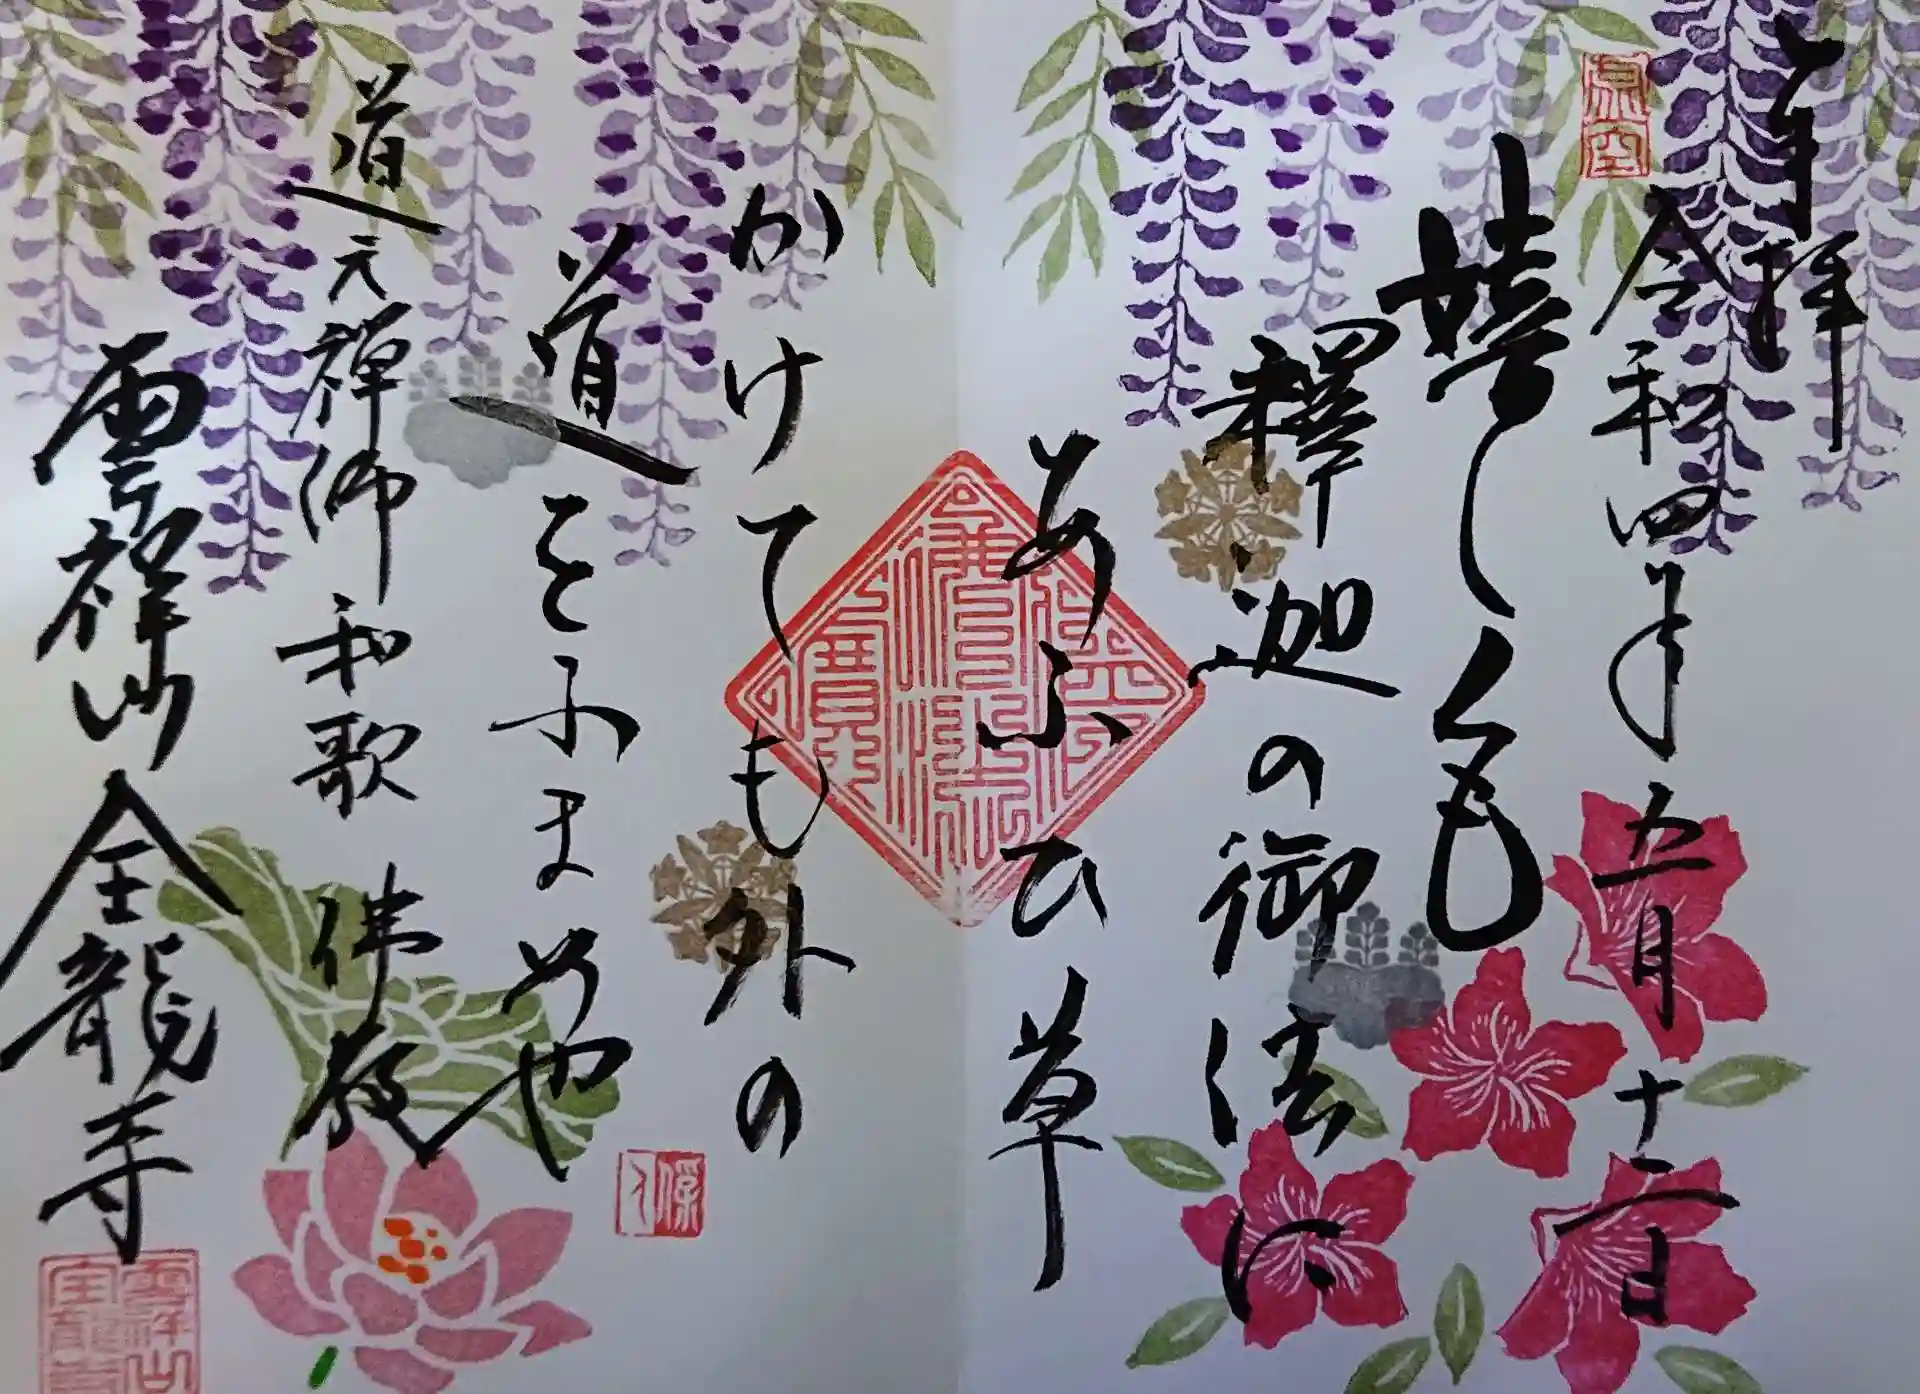 奉拝
令和四年五月十二日
嬉しくも
釋迦の御法に
あふひ草
かけても外の
道をふまめや
道元禅師和歌 佛教
雲祥山全龍寺
佛法僧寶